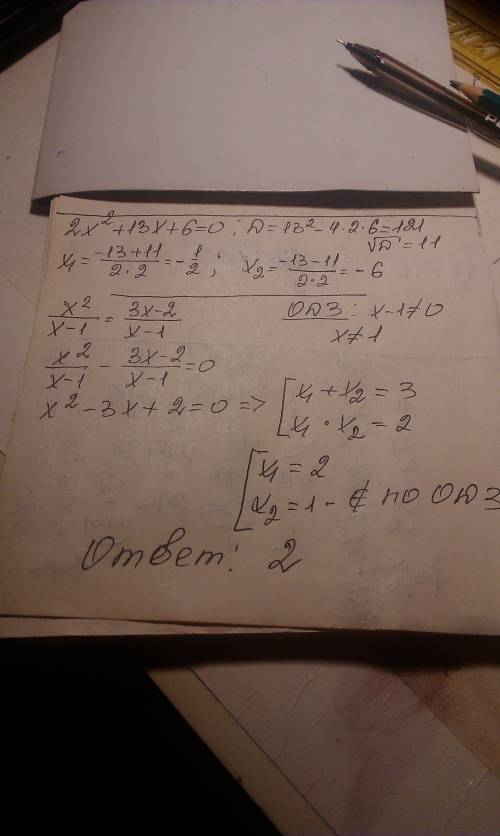 2x² + 13x + 6 = 0; D = 13² - 4·2·6 = 121
√D = 11
x₁ = (-13+11)/(2·2) = -1/2; x₂ = (-13-11)/(2·2) = -6
x²/(x-1) = (3x-2)/(x-1) ОДЗ: x-1≠0
x≠1
x²/(x-1) - (3x-2)/(x-1) = 0
x² - 3x + 2 = 0 => [x₁ + x₂ = 3
[x₁ · x₂ = 2
[x₁ = 2
[x₂ = 1 - ∉ ПО ОДЗ
Ответ: 2